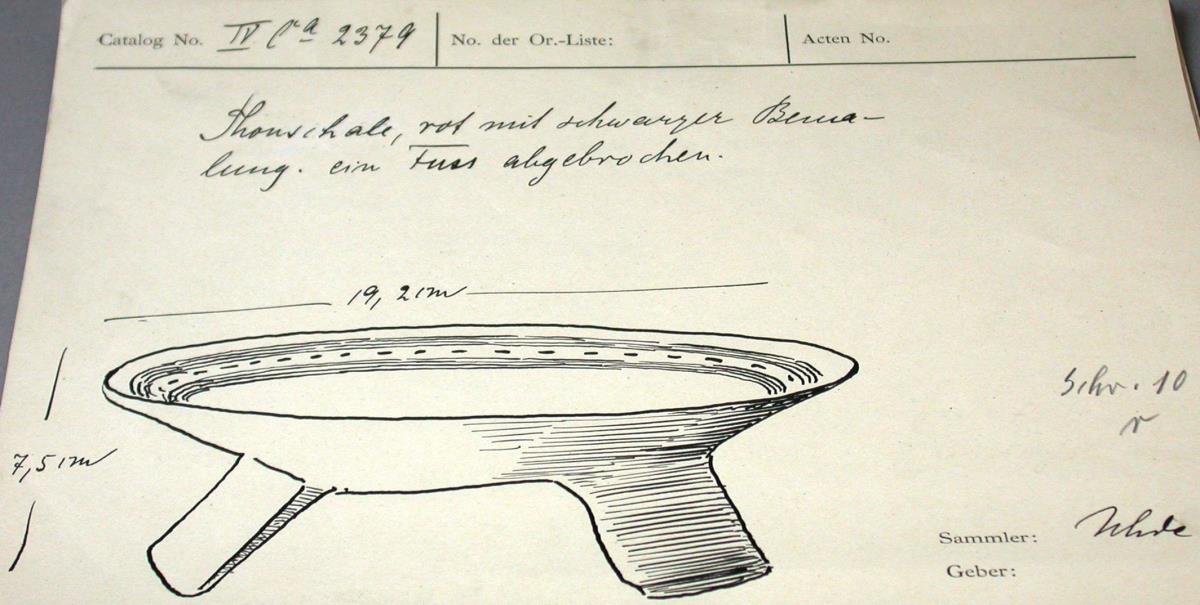 Catalog No. IV Ca 2379 No. der Or.-Liste: Acten No.
Thonschale, rot mit schwarzer Bema-
lung. ein Fuss abgebrochen.
19,2 cm
Schr. 10
r
7,5 cm
Sammler: Uhde
Geber: